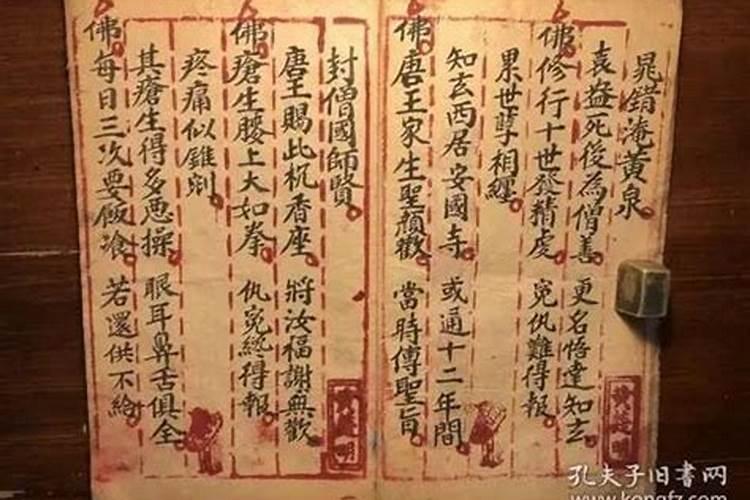 晁錯淹黃泉
袁盎死後為僧善 更名悟達知玄
佛修行十世發精虔 寃仇難得報
累世孽相纏
知玄西居安國寺 或通十二年間
佛唐王家生聖顏歡 當時傳聖旨
封僧國師賢
唐王賜此杌香座 將汝福謝無歡
佛瘡生腰上大如拳 仇寃終得報
疼痛似錐剜
其瘡生得多恶操 眼耳鼻舌俱全
佛每日三次要飯飡 若還供不給
孔夫子旧书网
www.kongfz.com